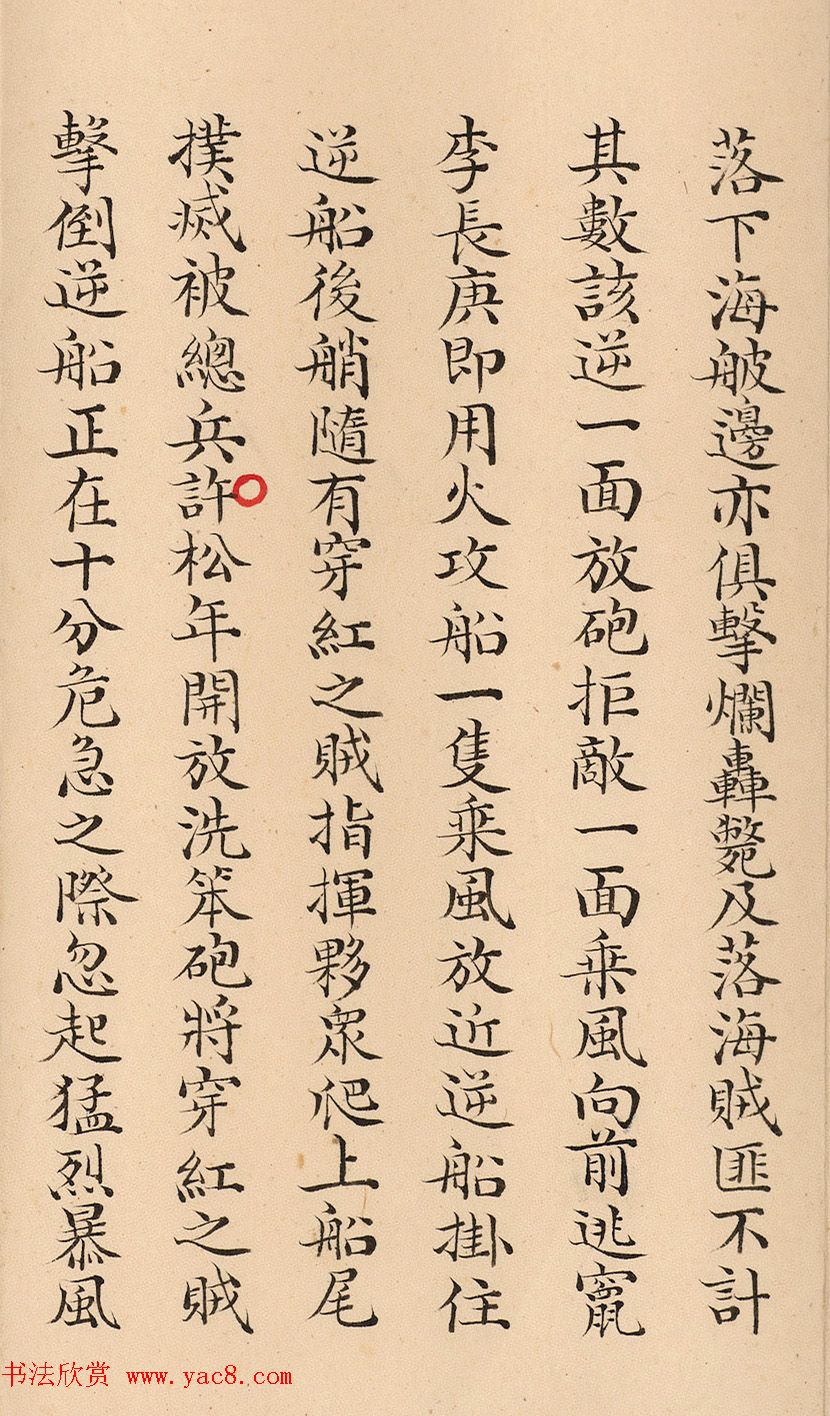 落下海舨邊亦俱擊爛轟斃及落海賊匪不計
其數該逆一面放砲拒敵一面乗風向前逃竄
李長庚即用火攻船一隻乗風放近逆船掛住
逆船後艄隨有穿紅之賊指揮夥眾爬上船尾
撲滅被總兵許松年開放洗笨砲將穿紅之賊
擊倒逆船正在十分危急之際忽起猛烈暴風
书法欣赏 www.yac8.com